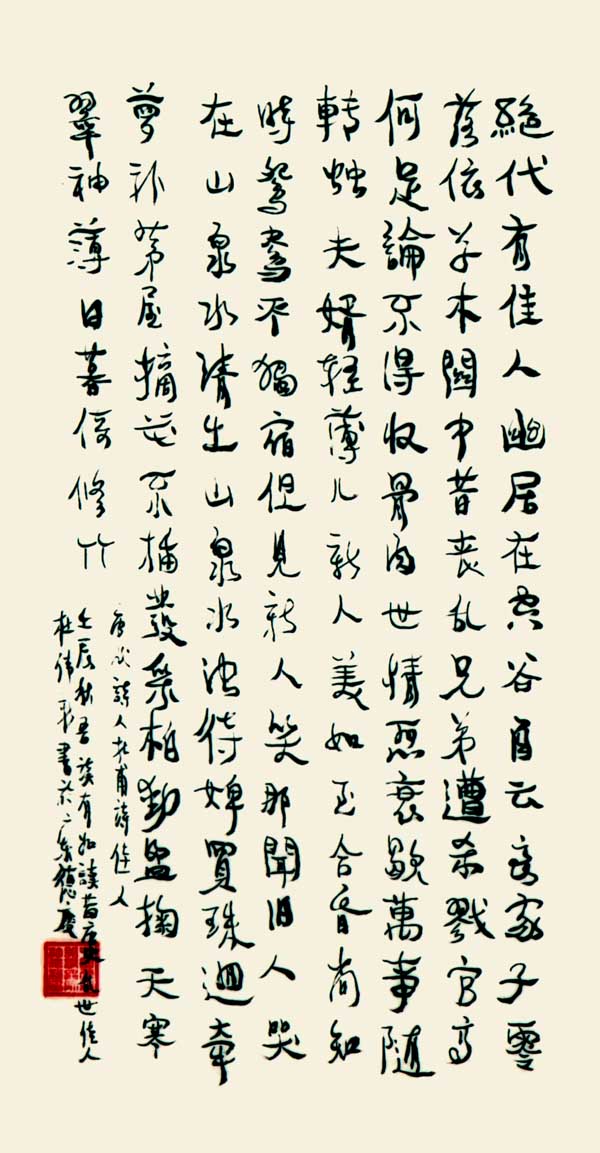 絕代有佳人幽居在空谷自云良家子零
落依草木關中昔喪乱兄弟遭杀戮官高
何足論不得收骨肉世情惡衰歇萬事隨
轉烛夫婿輕薄儿新人美如玉合昏尚知
時鴛鴦不獨宿但見新人笑那聞旧人哭
在山泉水清出山泉水浊侍婢買珠迴牽
萝补茅屋摘花不插發采柏動盈掬天寒
翠袖薄日暮倚修竹
唐代詩人杜甫詩佳人
壬辰秋吾讀有如讀昔唐史乱世佳人
書於二泉